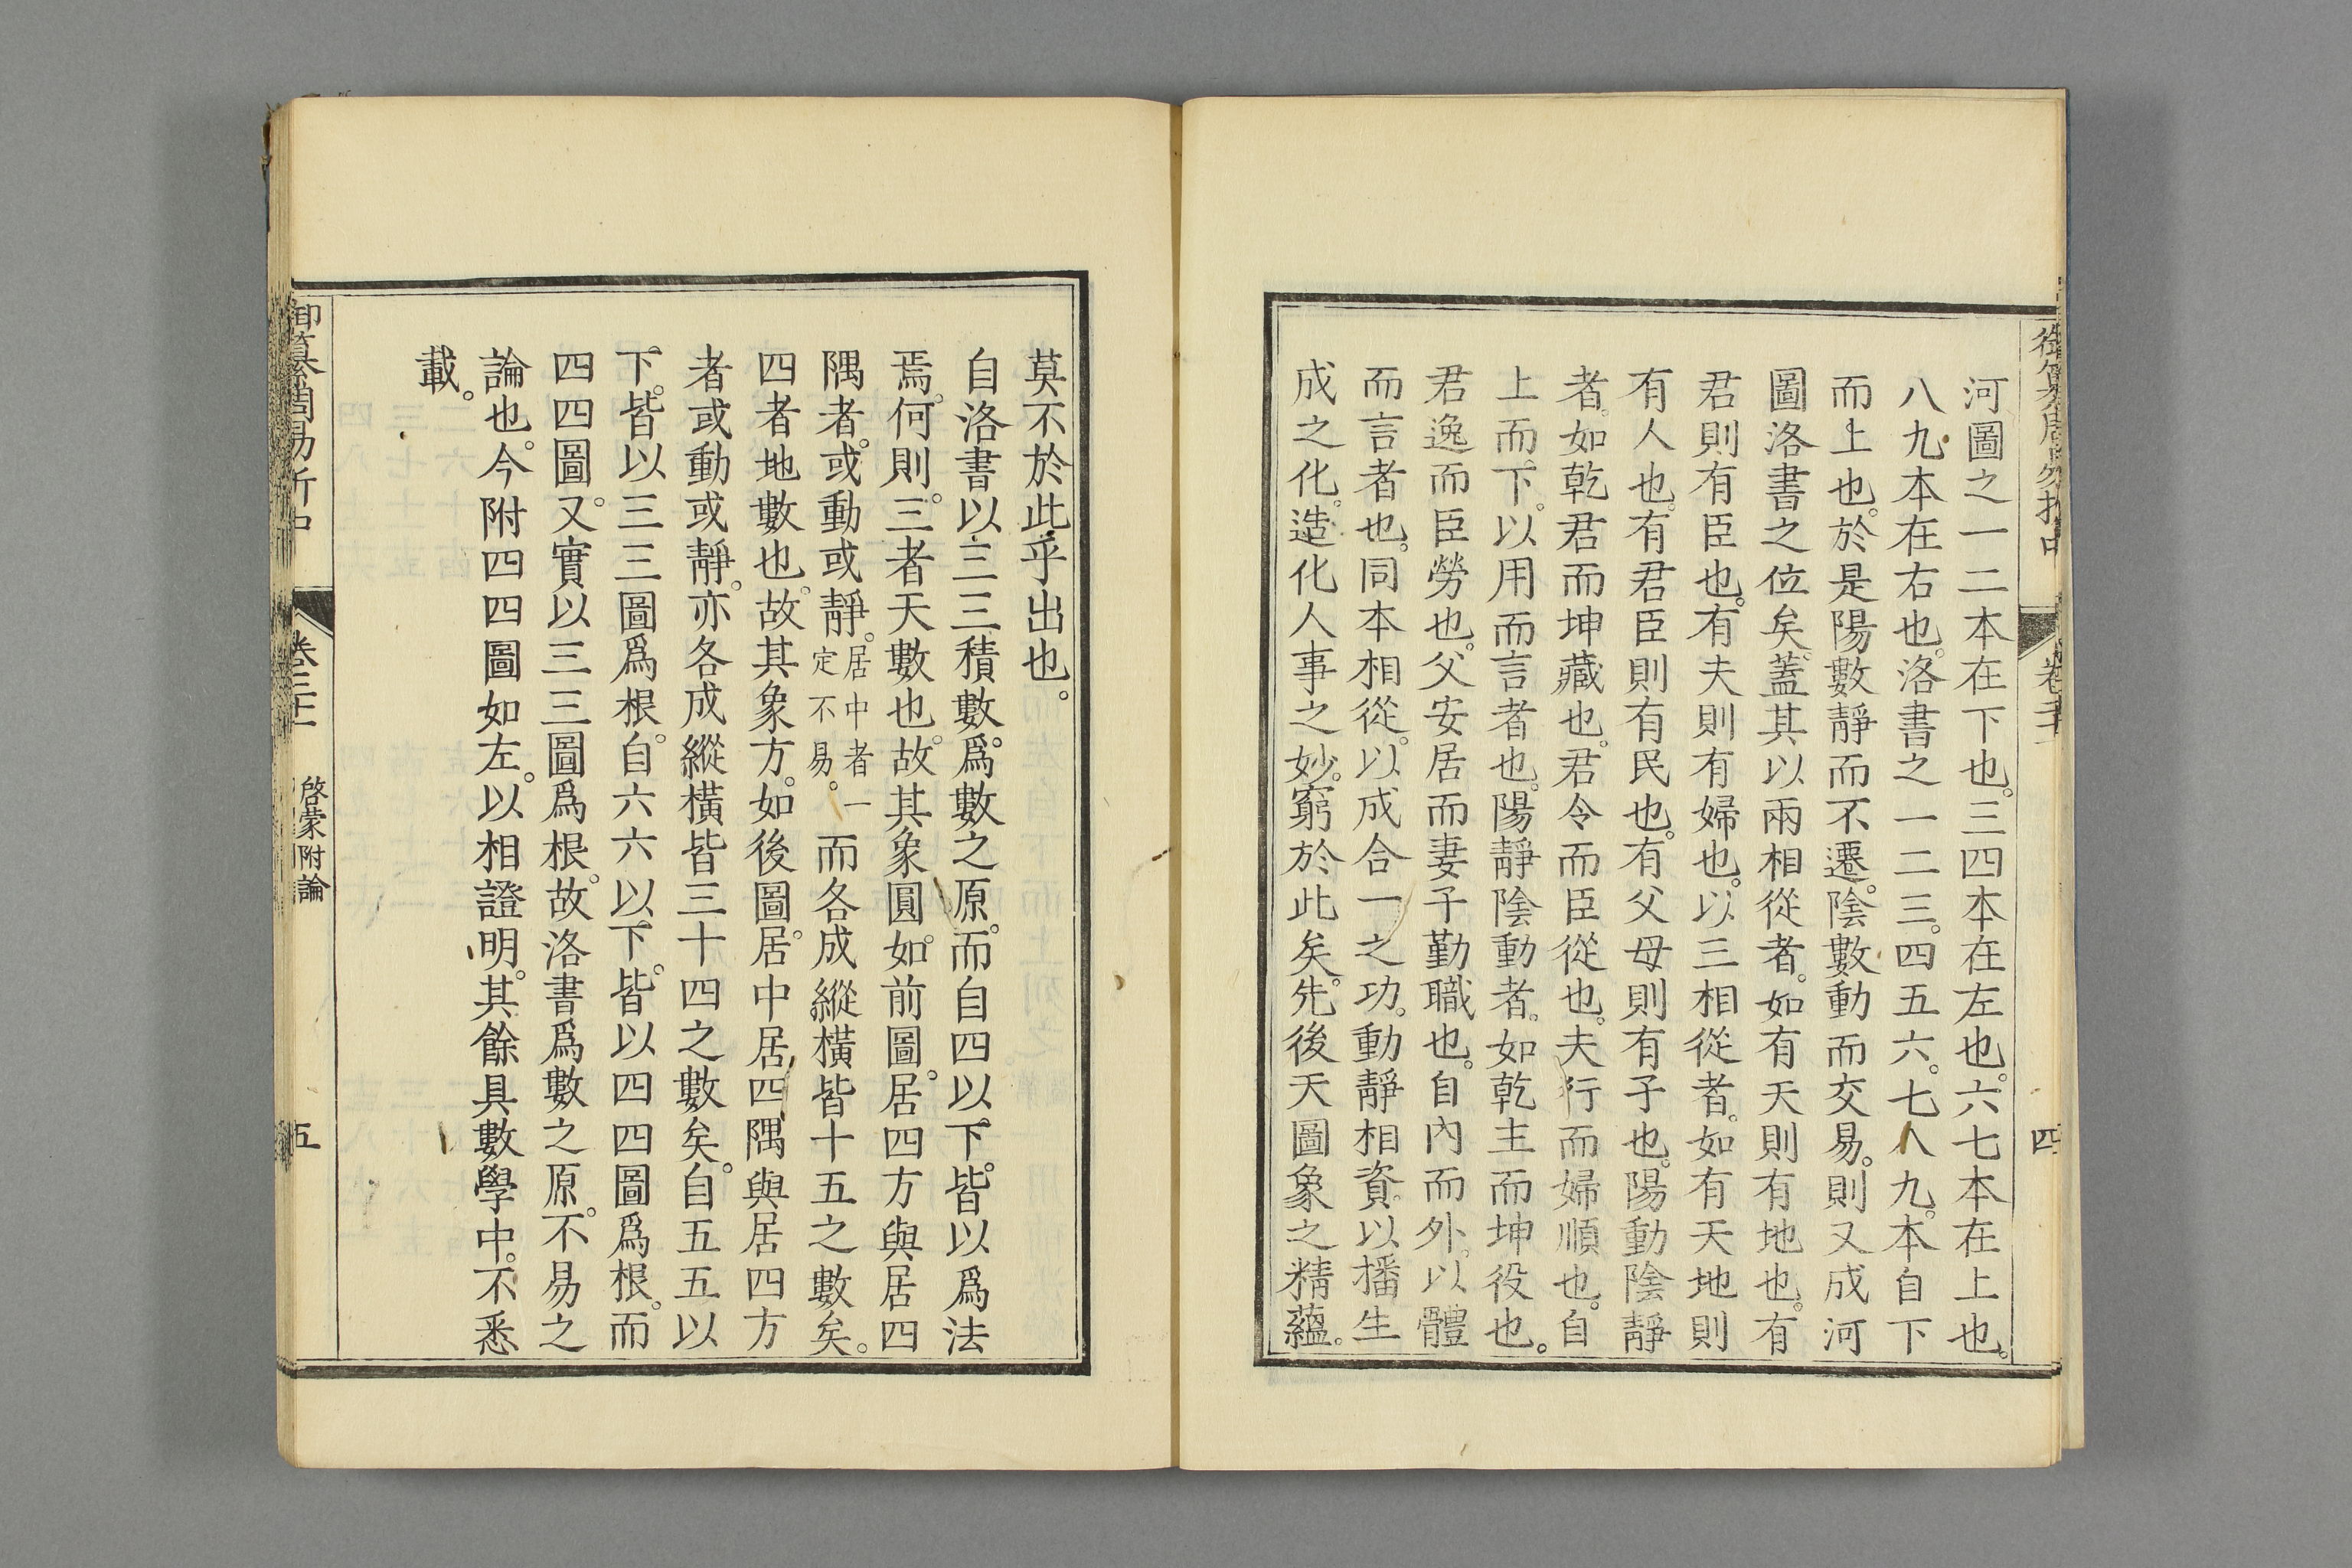 御纂周易折中
卷二十一
四
河圖之一二本在下也。三四本在左也。六七本在上也。
八九本在右也。洛書之一二三。四五六。七八九。本自下
而上也。於是陽數靜而不遷。陰數動而交易。則又成河
圖洛書之位矣。蓋其以兩相從者。如有天則有地也。有
君則有臣也。有夫則有婦也。以三相從者。如有天地則
有人也。有君臣則有民也。有父母則有子也。陽動陰靜
者。如乾君而坤藏也。君令而臣從也。夫行而婦順也。自
上而下。以用而言者也。陽靜陰動者。如乾主而坤役也。
君逸而臣勞也。父安居而妻子勤職也。自內而外。以體
而言者也。同本相從。以成合一之功。動靜相資。以播生
成之化。造化人事之妙。窮於此矣。先後天圖象之精蘊。
莫不於此乎出也。
自洛書以三三積數。爲數之原。而自四以下。皆以爲法
焉。何則。三者天數也。故其象圓。如前圖。居四方與居四
隅者。或動或靜。居中者一定不易。而各成縱橫皆十五之數矣。
四者地數也。故其象方。如後圖。居中居四隅與居四方
者或動或靜。亦各成縱橫皆三十四之數矣。自五五以
下。皆以三三圖爲根。自六六以下。皆以四四圖爲根。而
四四圖。又實以三三圖爲根。故洛書爲數之原。不易之
論也。今附四四圖如左。以相證明。其餘具數學中。不悉
載。
御纂周易折中
卷二十一
啓蒙附論
五